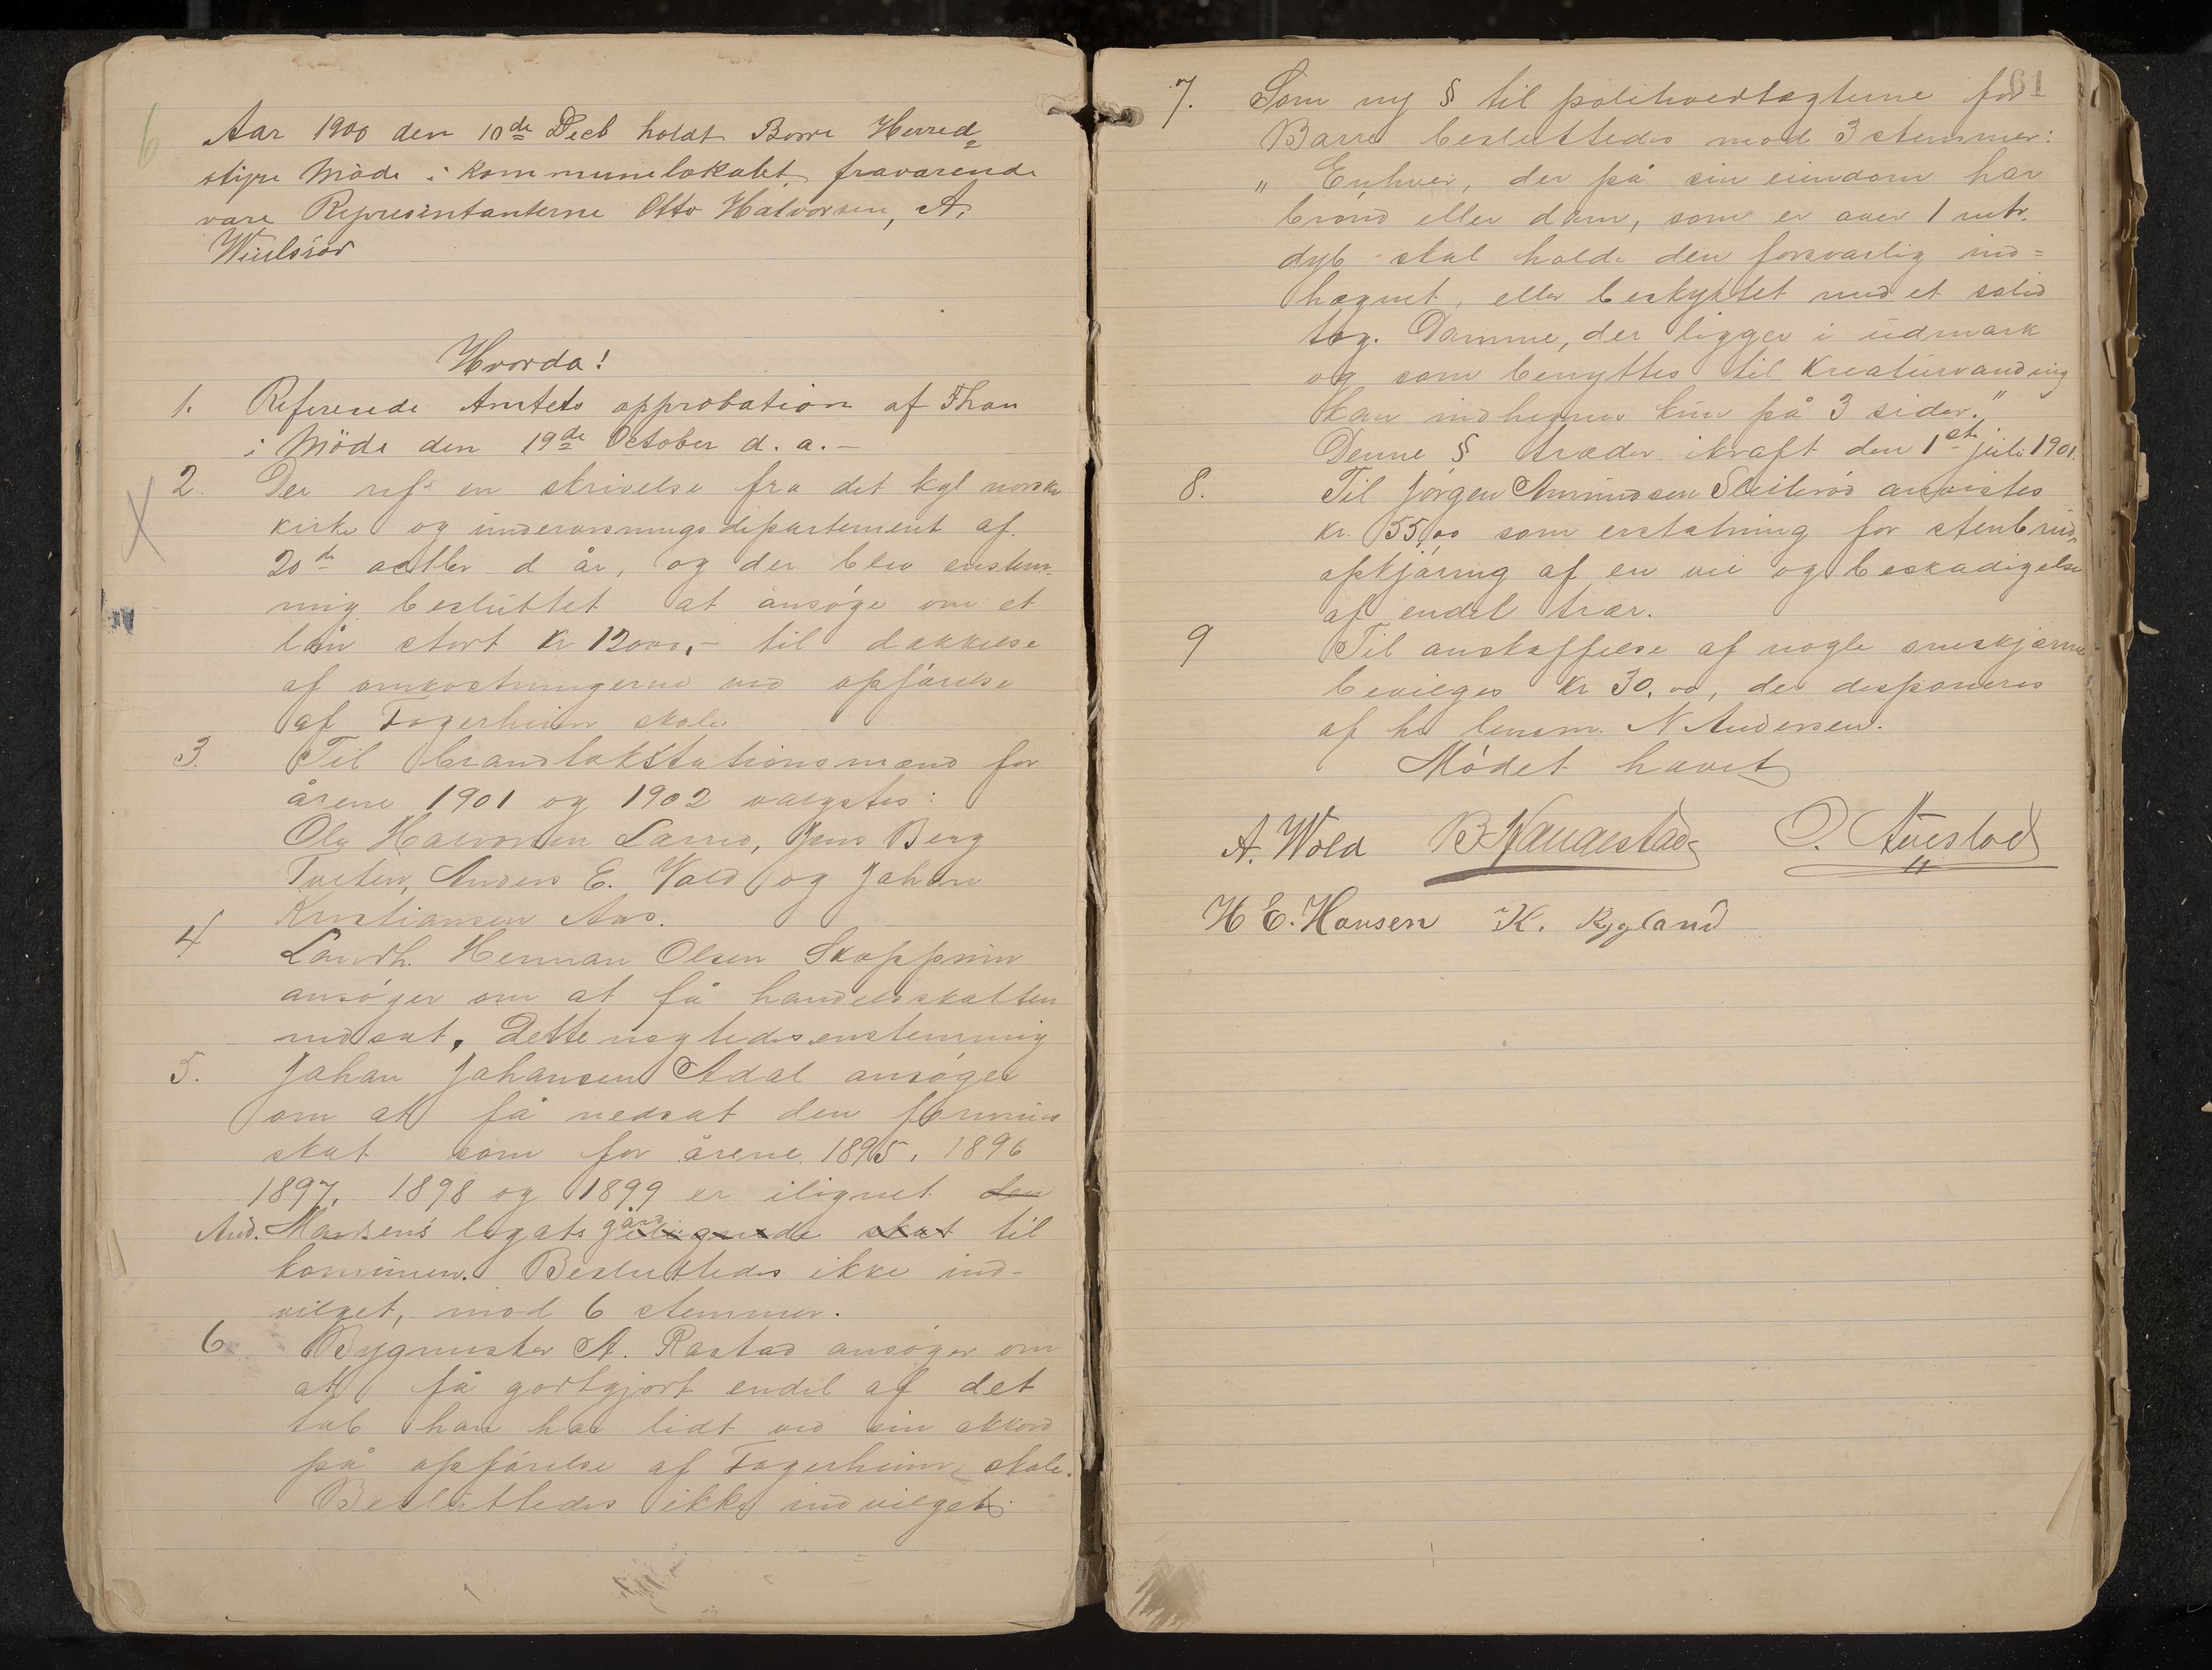 6
Aar 1900 den 10de Decb holdt Borre Herred=
styre Möde i Kommunelokalet fraværende
vare Repræsentanterne Otto Halvorsen, A.
Hvorda!
1. Refererede Amtets approbation af Fhan
i Möde den 19de October d. a. –
2. Der refs en skrivelse fra det kgl norske
kirke og undervisningsdepartement af
20de d år, og der blev enstem-
mig besluttet at ansøge om et
lån stort Kr 12000,- til dækkelse
af omkostningerne ved opførelse
af Fagerheim skole
3. Til brandtakstationsmænd for
årene 1901 og 1902 valgtes:
Ole Halvorsen Larød, Jens Berg
Tveten, Anders E. Vold og Johan
Kristiansen Aas.
4 Landh. Herman Olsen Skoppum
ansøger om at få handelsskatten
nedsat. Dette nægtedes enstemmig
5. Johan Johansen Adal ansøger
om at få nedsat den formues
skat som for årene 1895, 1896
1897, 1898 og 1899 er ilignet den
And. Madsens legats gård skat til
komunen. Besluttedes ikke ind-
vilget, mod 6 stemmer.
6 Bygmester A. Rastad ansøger om
at få godtgjort endel af det
tab han har lidt ved sin akkord
på opførelse af Fagerheim skole.
Besluttedes ikke indvilget.
61
7. Som ny § til politivedtægterne for
Borre besluttedes mod 3 stemmer:
" Enhver, der på sin eiendom har
brønd eller dam, som er over 1 mtr.
dyb skal holde den forsvarlig ind=
hegnet, eller beskyttet med et solid
tag. Damme, der ligger i udmark
og som benyttes til kreaturvanding
kan indhegnes kun på 3 sider."
Denne § træder ikraft den 1st juli 1901.
8. Til Jörgen Amundsen anvistes
Kr. 55,00 som erstatning for stenbrud,
opkjøring af en vei og beskadigelse
af endel trær.
9 Til anskaffelse af nogle sneskjærme
bevilges Kr 30,00, der disponeres
af hr lensm. N Andersen.
Mødet hævet
A. Wold B. Vaugestad O. Auestad
H E. Hansen K. Rygland